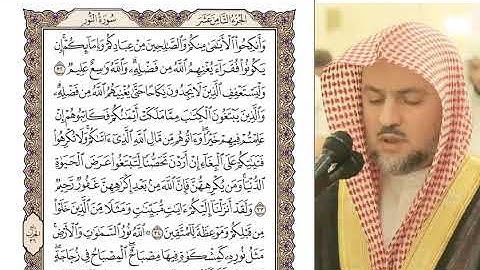 الجزء الثامن عشر
سورة النور
وَأَنكِحُوا۟ ٱلْأَيَـٰمَىٰ مِنكُمْ وَٱلصَّـٰلِحِينَ مِنْ عِبَادِكُمْ وَإِمَآئِكُمْ ۚ إِن
يَكُونُوا۟ فُقَرَآءَ يُغْنِهِمُ ٱللَّهُ مِن فَضْلِهِۦ ۗ وَٱللَّهُ وَٰسِعٌ عَلِيمٌ ٣٢
وَلْيَسْتَعْفِفِ ٱلَّذِينَ لَا يَجِدُونَ نِكَاحًا حَتَّىٰ يُغْنِيَهُمُ ٱللَّهُ مِن فَضْلِهِۦ ۗ
وَٱلَّذِينَ يَبْتَغُونَ ٱلْكِتَـٰبَ مِمَّا مَلَكَتْ أَيْمَـٰنُكُمْ فَكَاتِبُوهُمْ إِنْ
عَلِمْتُمْ فِيهِمْ خَيْرًا ۖ وَءَاتُوهُم مِّن مَّالِ ٱللَّهِ ٱلَّذِىٓ ءَاتَىٰكُمْ ۚ وَلَا تُكْرِهُوا۟
فَتَيَـٰتِكُمْ عَلَى ٱلْبِغَآءِ إِنْ أَرَدْنَ تَحَصُّنًا لِّتَبْتَغُوا۟ عَرَضَ ٱلْحَيَوٰةِ
ٱلدُّنْيَا ۚ وَمَن يُكْرِههُّنَّ فَإِنَّ ٱللَّهَ مِنۢ بَعْدِ إِكْرَٰهِهِنَّ غَفُورٌ رَّحِيمٌ
٣٣ وَلَقَدْ أَنزَلْنَآ إِلَيْكُمْ ءَايَـٰتٍ مُّبَيِّنَـٰتٍ وَمَثَلًا مِّنَ ٱلَّذِينَ خَلَوْا۟
مِن قَبْلِكُمْ وَمَوْعِظَةً لِّلْمُتَّقِينَ ٣٤ ۞ ٱللَّهُ نُورُ ٱلسَّمَـٰوَٰتِ وَٱلْأَرْضِ ۚ
مَثَلُ نُورِهِۦ كَمِشْكَوٰةٍ فِيهَا مِصْبَاحٌ ۖ ٱلْمِصْبَاحُ فِى زُجَاجَةٍ ۖ